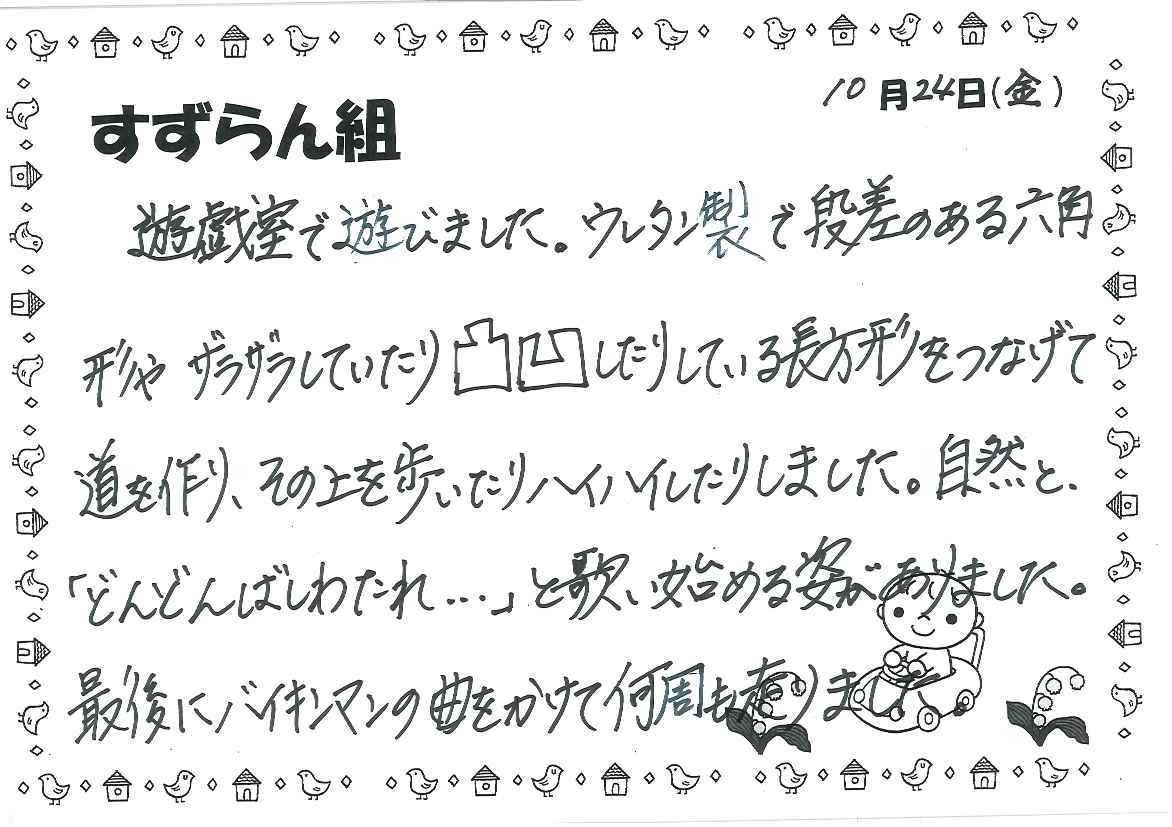 10月24日(金)
すずらん組
遊戯室で遊びました。ウレタン製で段差のある六角
形や ザラザラしていたり凸凹したりしている長方形をつなげて
道を作り、その上を歩いたりハイハイしたりしました。自然と、
「どんどんばしわたれ…」と歌い始める姿がありました。
最後にバイキンマンの曲をかけて何周も走りました。